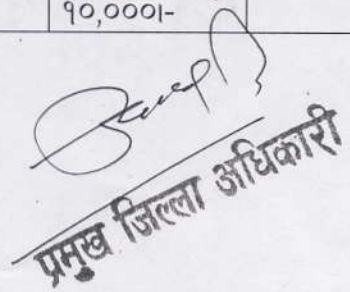 १०,०००।-
प्रमुख जिल्ला अधिकारी